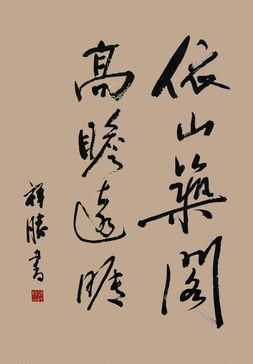 依山築閣
高瞻遠瞩
祥勝書